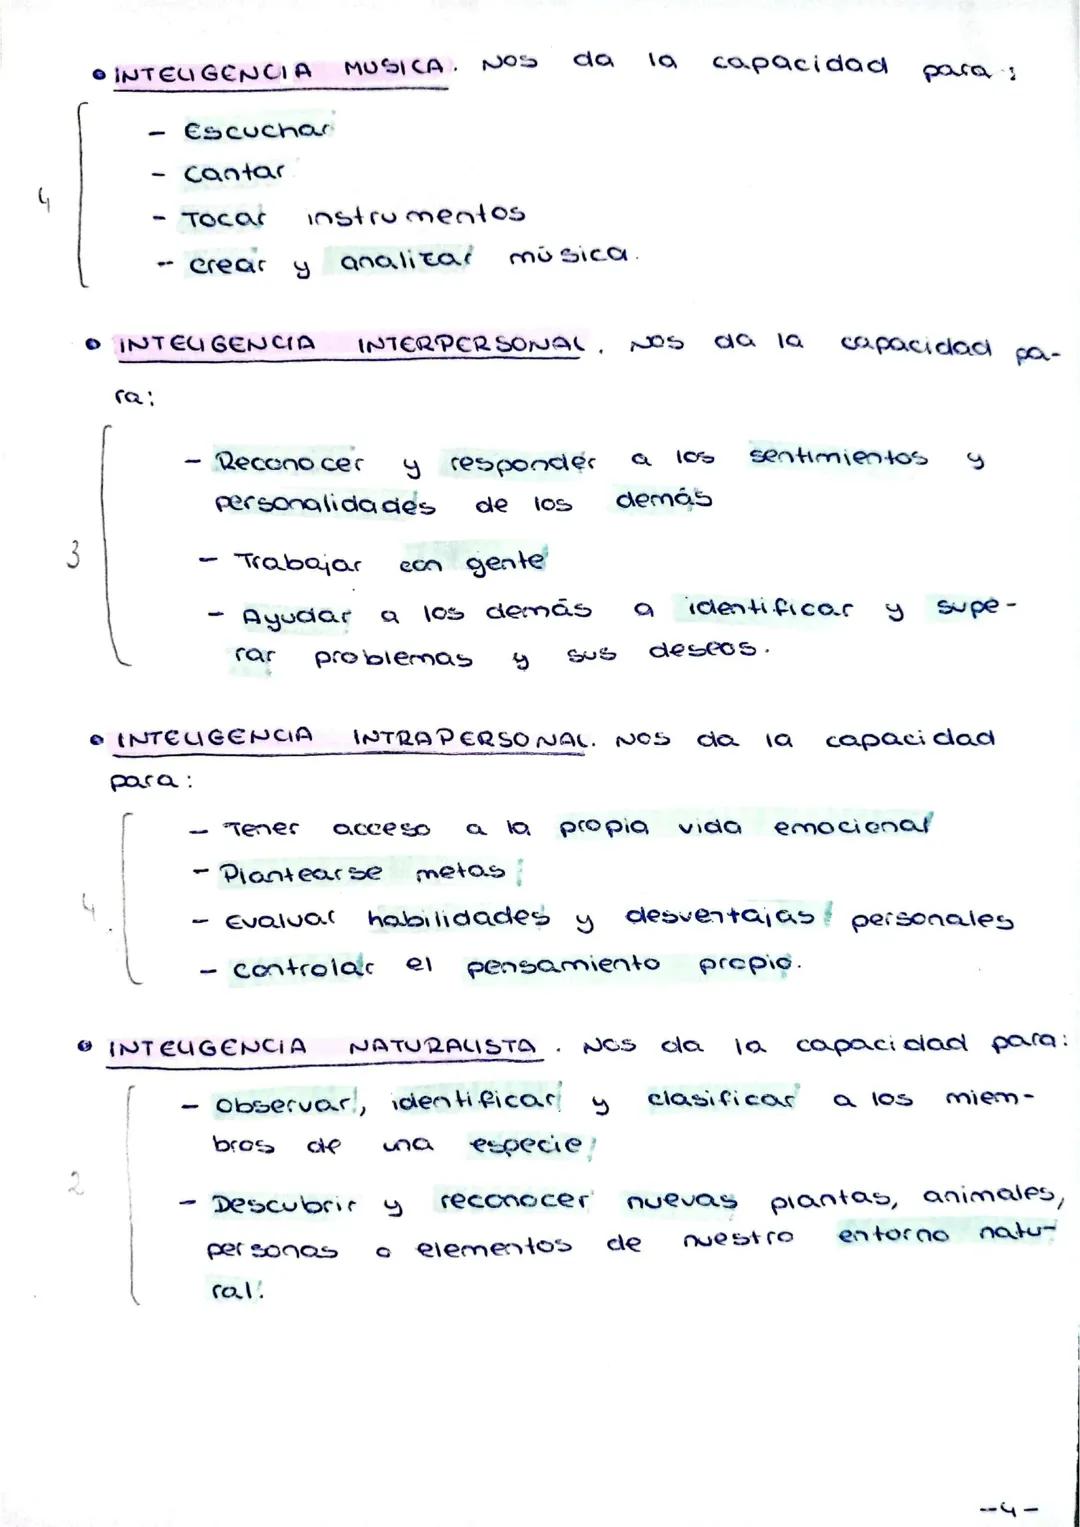 • INTELIGENCIA MUSICA. Nos da la capacidad para:
- Escuchar
- Cantar
4
- Tocar instrumentos
- crear y analizar música.
• INTELIGENCIA INTERPERSONAL. Nos da la capacidad pa-
ra:
- Reconocer y responder a los sentimientos y
personalidades de los demás
3
- Trabajar con gente
- Ayudar a los demás a identificar y supe-
rar problemas y sus deseos.
• INTELIGENCIA INTRAPERSONAL. Nos da la capacidad
para:
- Tener acceso a la propia vida emocional
- Plantearse metas
4
- Evaluar habilidades y desventajas personales
- controlar el pensamiento propio.
• INTELIGENCIA NATURALISTA. Nos da la capacidad para:
- Observar, identificar y clasificar a los miem-
bros de una especie
2
- Descubrir y reconocer nuevas plantas, animales,
personas o elementos de nuestro entorno natu-
ral.
--4-